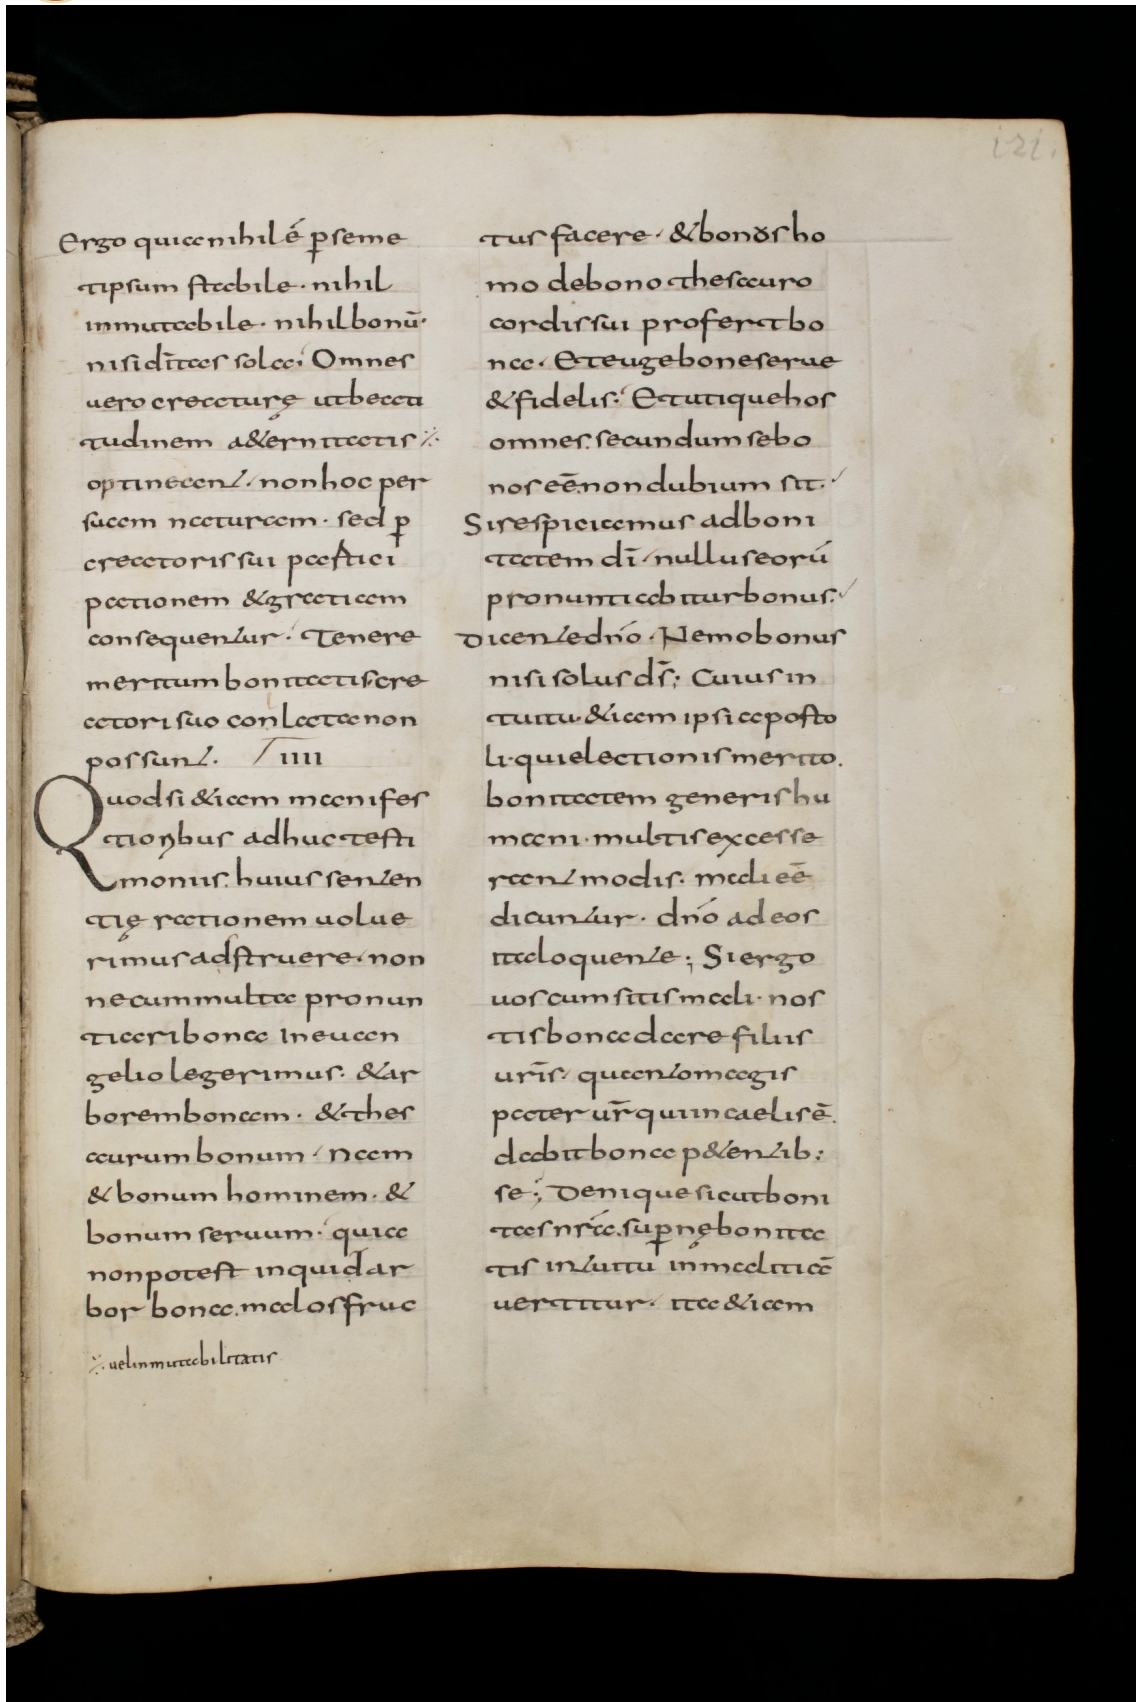 121.
Ergo quia nihil ē ꝑ seme
tipsum stabile · nihil
inmutabile · nihil bonū ·
nisi dītas sola; Omnes
uero creaturę ut beati
tudinem a&ernitatis ⁒
optineant · non hoc per
suam naturam · sed ꝑ
creatoris sui partici
pationem & gratiam
consequentur · Tenere
meritum bonitatis cre
atori suo conlata non
possunt · IIII
Quod si &iam manifes
tioribus adhuc testi
moniis · huius senten
tię rationem uolue
rimus adstruere · non
ne cum multa pronun
tiari bona In euan
gelio legerimus · & ar
borem bonam · & thes
aurum bonum · Nam
& bonum hominem · &
bonum seruum · quia
non potest inquid ar
bor bona · malos fruc
⁒ uel inmutabilitatis
tus facere · & bonus ho
mo de bono thesauro
cordis sui profert bo
na · Et euge bone serue
& fidelis · Et utique hos
omnes · secundum se bo
nos eē non dubium sit ·
Si respiciamus ad boni
tatem dī · nullus eorū
pronuntiabitur bonus ·
Dicente dn̄o · Nemo bonus
nisi solus d̄s; Cuius in
tuitu · &iam ipsi aposto
li · qui electionis merito ·
bonitatem generis hu
mani · multis excesse
rant modis · mali eē
dicuntur · dn̄o ad eos
ita loquente; Si ergo
uos cum sitis mali · nos
tis bona dare filiis
ur̄is · quanto magis
pater ur̄ qui in caelis ē ·
dabit bona p&entib:
se; Denique sicut boni
tas nr̄a · suꝑnę bonita
tis intuitu in malitiā
uertitur · ita &iam